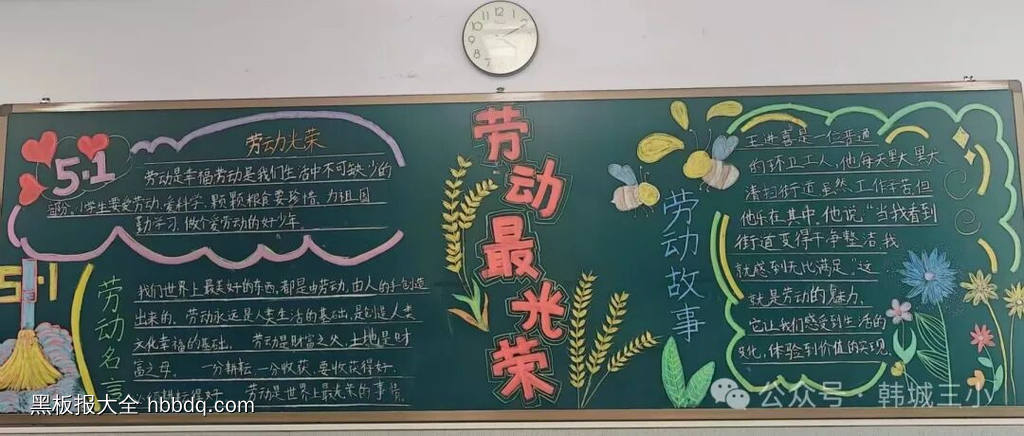 12
劳动最光荣
5.1
劳动光荣
劳动是幸福劳动是我们生活中不可缺少的
部分.小学生要爱劳动.爱科学.颗颗粮食要珍惜.为祖国
勤学习.做个爱劳动的好少年.
5.1
劳动名言
我们世界上最美好的东西,都是由劳动,由人的手创造
出来的. 劳动永远是人类生活的基础,是创造人类
文化幸福的基础. 劳动是财富之父,土地是财
富之母. 一分耕耘,一分收获,要收获得好,
得好. 劳动是世界上最光荣的事
劳动故事
王进喜是一位普通
的环卫工人,他每天起早贪黑
清扫街道虽然工作辛苦但
他乐在其中.他说"当我看到
街道变得干净整洁我
就感到无比满足"这
就是劳动的魅力,
它让我们感受到生活的
文化,体验到价值的实现
公众号·韩城三小
黑板报大全 hbbdq.com